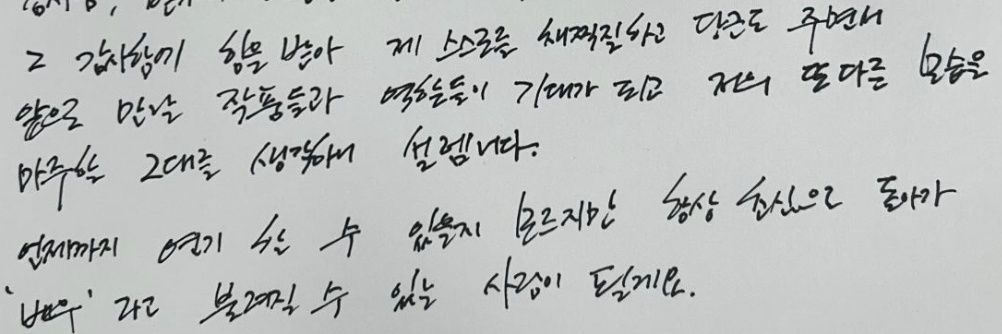 그 감사함에 힘을 받아 제 스스로를 채찍질하고 당근도 주면서
앞으로 만날 작품들과 역할들이 기대가 되고 저의 또 다른 모습을
마주할 그대를 생각하니 설렙니다.
언제까지 연기 할 수 있을지 모르지만 항상 초심으로 돌아가
'배우' 라고 불려질 수 있는 사람이 될게요.